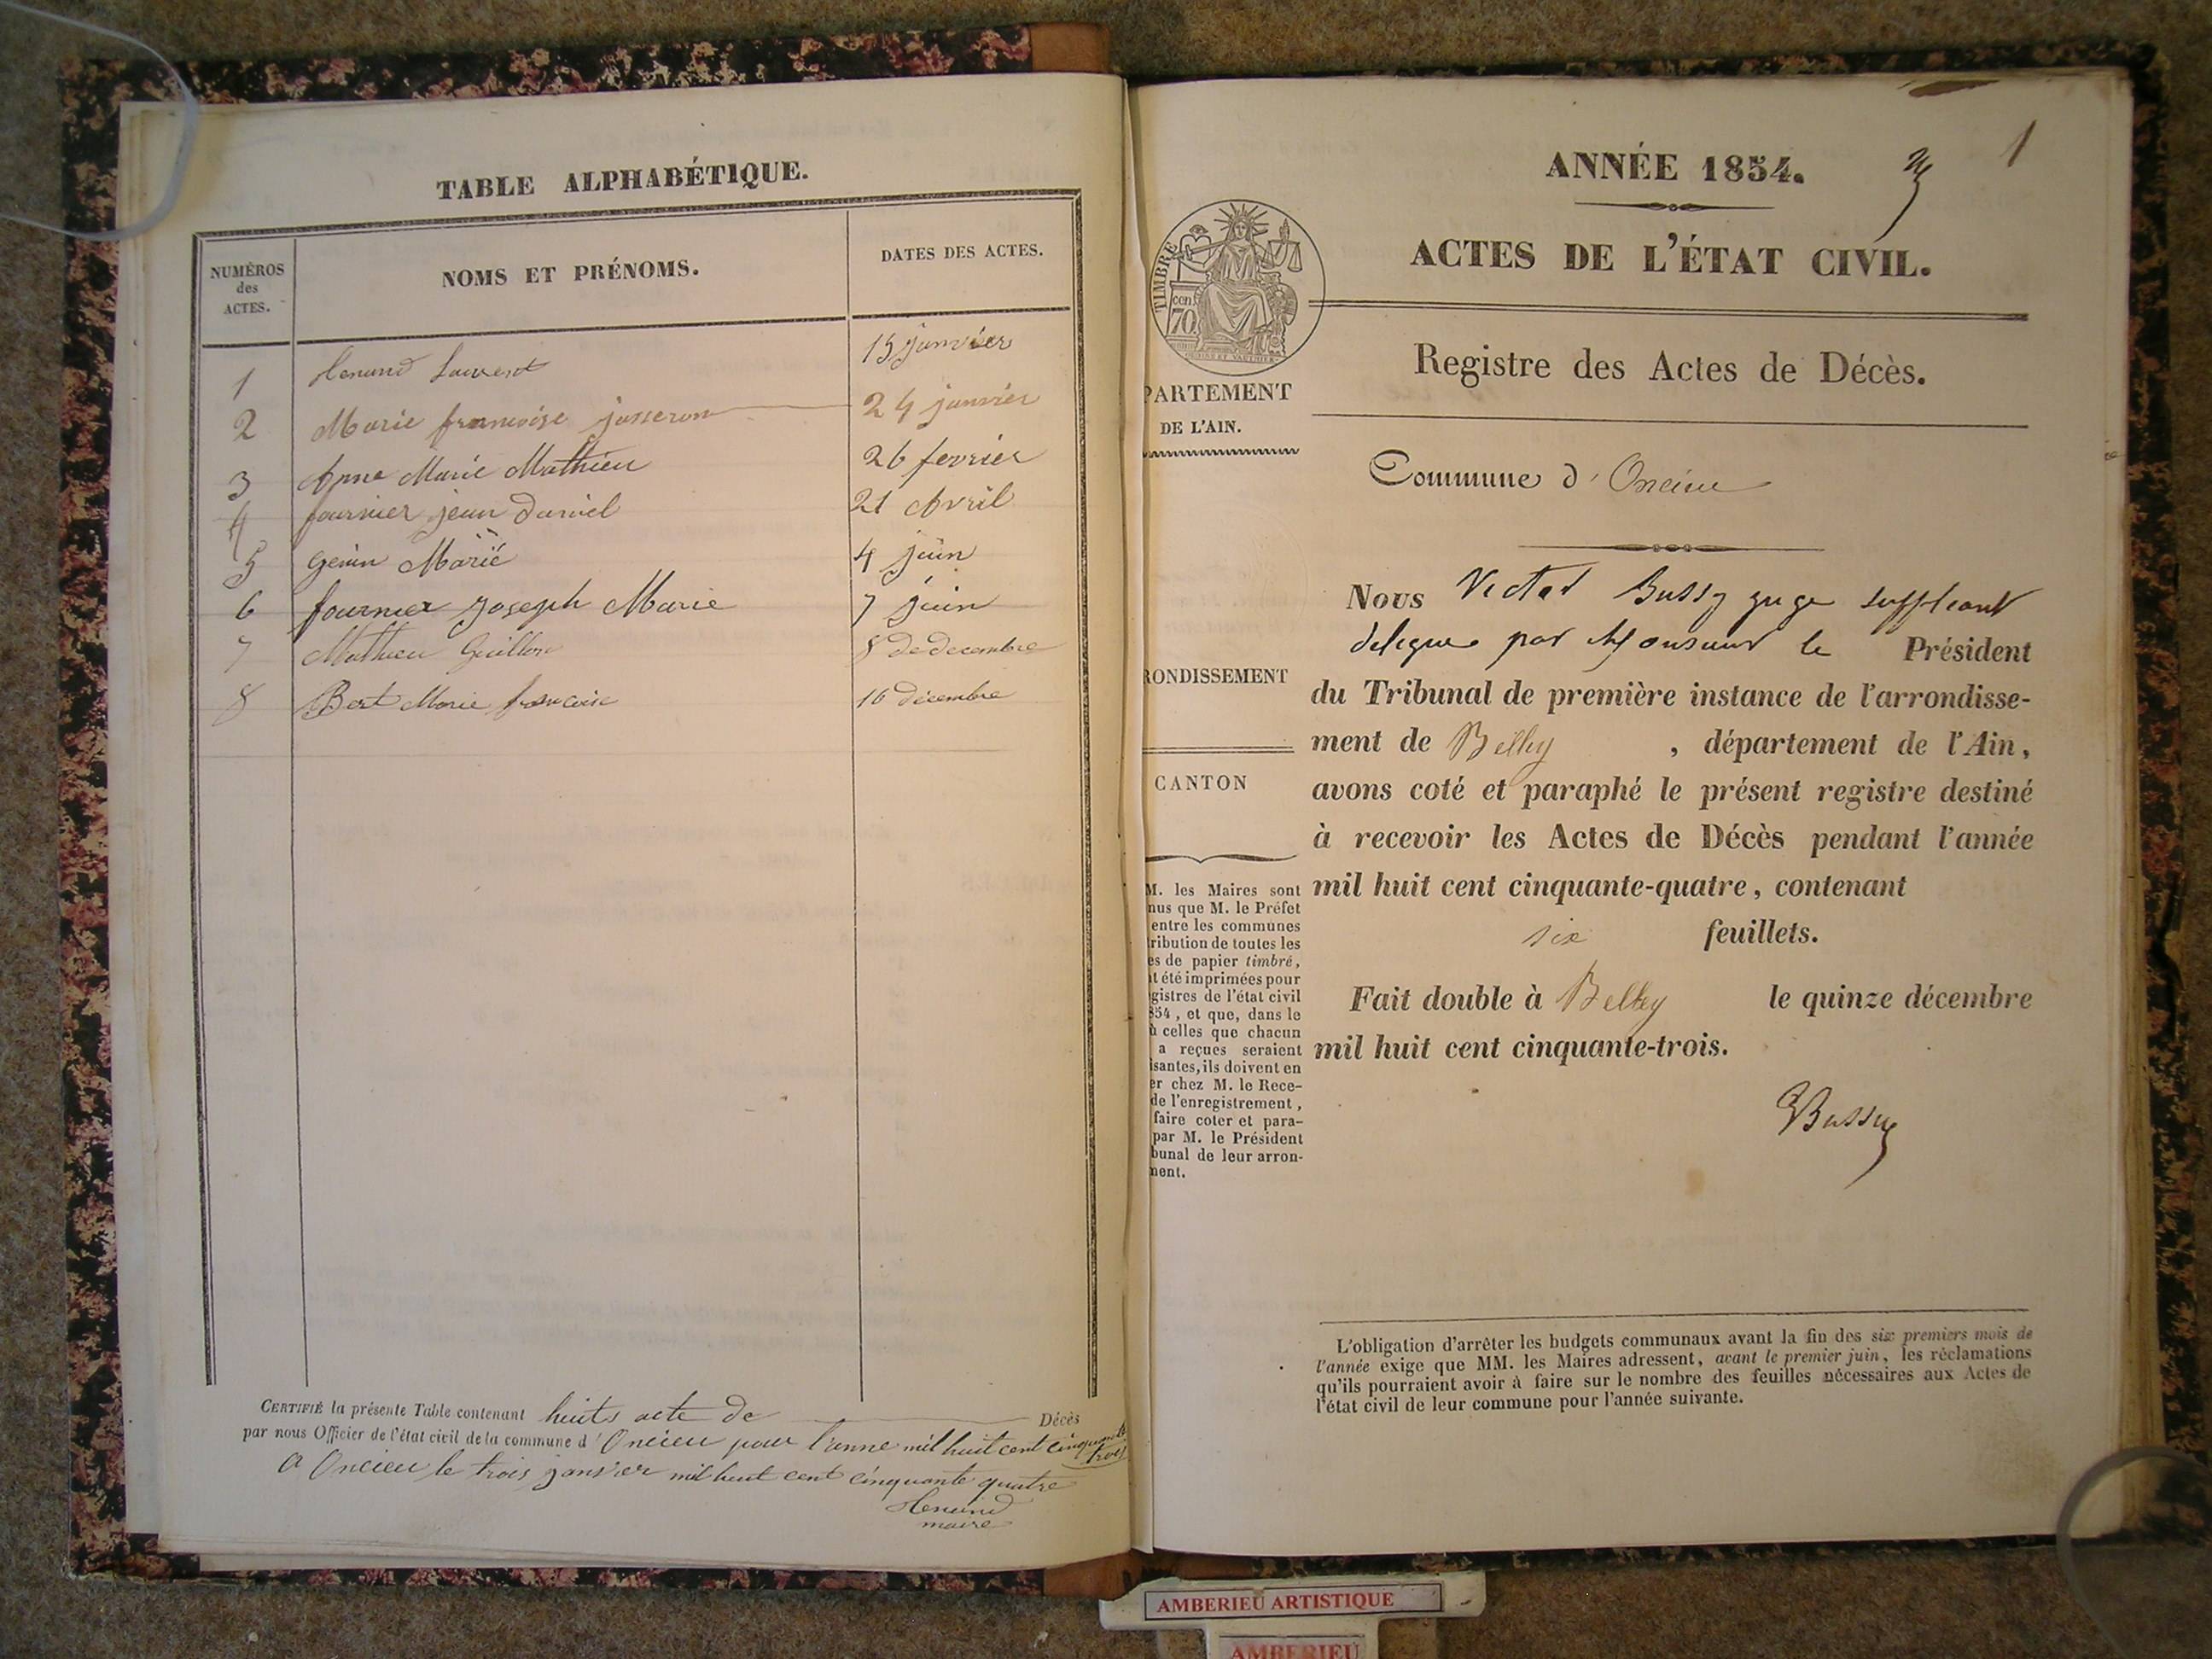 TABLE ALPHABÉTIQUE.
NUMÉROS
des
ACTES.
NOMS ET PRÉNOMS.
DATES DES ACTES.
1 Henund Laurent 15 janvier
2 Marie francoise josseron 24 janvier
3 Anne Marie Mathieu 26 fevrier
4 fournier jean daniel 21 Avril
5 genin Marie 4 juin
6 fournier joseph Marie 7 juin
7 Mathieu Guillon 8 de decembre
8 Bert Marie francoise 16 décembre
CERTIFIÉ la présente Table contenant huits acte de Décès
par nous Officier de l'état civil de la commune d'Oncieu pour l'anne mil huit cent cinquante
trois
A Oncieu le trois janvier mil huit cent cinquante quatre
maire
1
ANNÉE 1854.
ACTES DE L'ÉTAT CIVIL.
TIMBRE
cen.
70
Registre des Actes de Décès.
PARTEMENT
DE L'AIN.
Commune d'Oncieu
RONDISSEMENT
CANTON
M. les Maires sont
nus que M. le Préfet
entre les communes
tribution de toutes les
es de papier timbré,
nt été imprimées pour
gistres de l'état civil
854, et que, dans le
ù celles que chacun
a reçues seraient
isantes, ils doivent en
er chez M. le Rece-
de l'enregistrement,
faire coter et para-
par M. le Président
bunal de leur arron-
ment.
Nous Victor Bussy juge suppleant
delegue par Monsieur le Président
du Tribunal de première instance de l'arrondisse-
ment de Belley, département de l'Ain,
avons coté et paraphé le présent registre destiné
à recevoir les Actes de Décès pendant l'année
mil huit cent cinquante-quatre, contenant
six feuillets.
Fait double à Belley le quinze décembre
mil huit cent cinquante-trois.
Bussy
L'obligation d'arrêter les budgets communaux avant la fin des six premiers mois de
l'année exige que MM. les Maires adressent, avant le premier juin, les réclamations
qu'ils pourraient avoir à faire sur le nombre des feuilles nécessaires aux Actes de
l'état civil de leur commune pour l'année suivante.
AMBERIEU ARTISTIQUE
AMBERIEU